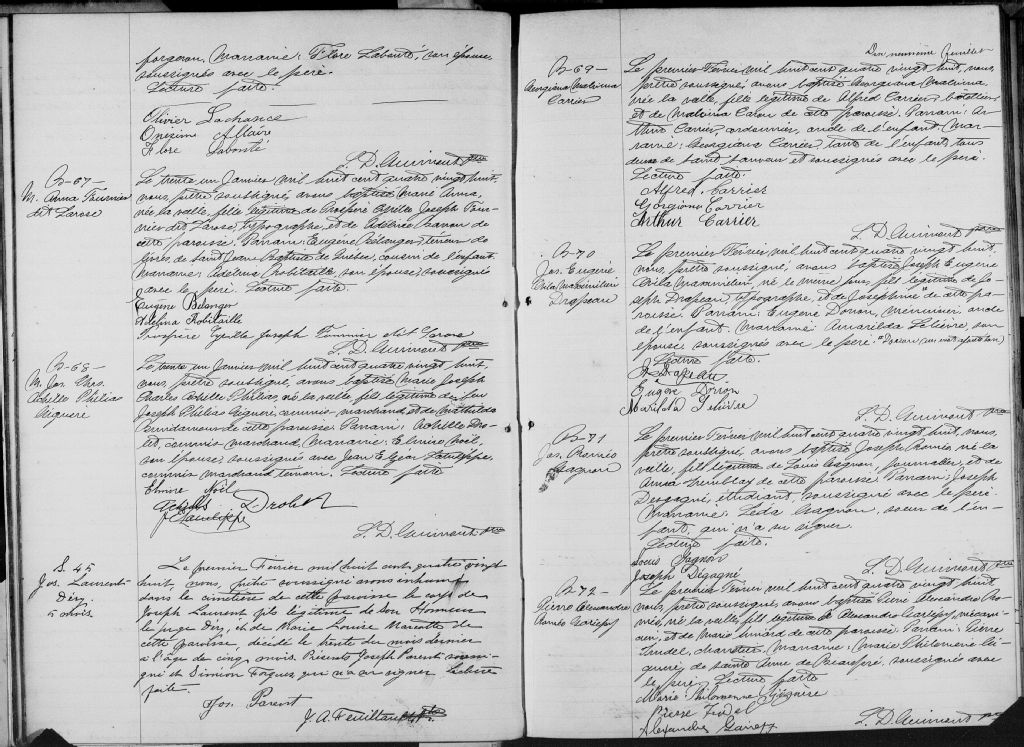 forgeron. Marraine: Flore Labonté, son épouse,
soussignés avec le père.
Lecture faite.
Olivier Lachance
Onézime Allaire
Flore Labonté
L. D. Guimont ptre
B-67-
M. Anna Fournier
dit Larose
Le trente un Janvier, mil huit cent quatre vingt huit,
nous, prêtre soussigné avons baptisé Marie Anna,
née la veille, fille légitime de Prospère Cyrille Joseph Four-
nier dit Larose, typographe, et de de
cette paroisse. Parrain: Eugène Bélanger, teneur de
livres, de Saint Jean Baptiste de Québec, cousin de l'enfant.
Marraine: Adelina Robitaille son épouse, soussignés
avec le père. Lecture faite.
Eugène Belanger
Adelina Robitaille
Prospère Cyrille Joseph Fournier dit Larose
L. D. Guimont ptre
B-68-
M. Jos. Chs.
Achille Philias
Le trente un Janvier mil huit cent quatre vingt huit,
nous, prêtre soussigné, avons baptisé Marie Joseph
Charles Achille Philias, né la veille, fils légitime de feu
Joseph Philias commis-marchand, et de Mathilda
de cette paroisse. Parrain: Achille Dro-
let, commis marchand, Marraine: Elmire Noël,
son épouse, soussignés avec Jean
commis marchand témoin. Lecture faite
Elmire Noël
Achille Drolet
L. D. Guimont ptre
S. 45
Jos. Laurent
Déry
5 mois.
Le premier Février mil huit cent quatre vingt
huit, nous, prêtre soussigné avons inhumé
dans le cimetière de cette paroisse le corps de
Joseph Laurent fils légitime de Son Honneur
le juge Déry, et de Marie Louise Marcotte de
cette paroisse, décédé le trente du mois dernier
à l'âge de cinq mois. Présents Joseph Parent soussi-
gné et Siméon Forgues qui n'a su signer. Lecture
faite.
Jos. Parent
J. A. Feuiltault Ptre.
Dix neuvième feuillet
B-69-
Georgiana Malvina
Carrier
Le premier Février, mil huit cent quatre vingt huit, nous,
prêtre soussigné avons baptisé Georgiana Malvina
née la veille, fille légitime de Alfred Carrier, hôtelier
et de Malvina Caron de cette paroisse. Parrain: Ar-
thur Carrier, cordonnier, oncle de l'enfant. Mar-
raine: Georgiana Carrier, tante de l'enfant, tous
deux de Saint Sauveur et soussignés avec le père.
Lecture faite.
Alfred Carrier
Georgiana Carrier
Arthur Carrier
L. D. Guimont ptre
B-70
Jos. Eugène
Maximilien
Drapeau
Le premier Février, mil huit cent quatre vingt huit
nous, prêtre soussigné, avons baptisé Joseph Eugène
Maximilien, né le même jour, fils légitime de Jo-
seph Drapeau, typographe, et de Joséphine de cette pa-
roisse. Parrain: Eugène Doiron, menuisier, oncle
de l'enfant. Marraine: Lelièvre son
épouse, soussignés avec le père.
Lecture faite.
J. Drapeau
Eugène Doiron
Lelièvre
L. D. Guimont ptre
B-71
Jos. Roméo
Gagnon
Le premier Février, mil huit cent quatre vingt huit, nous,
prêtre soussigné, avons baptisé Joseph Roméo, né la
veille, fils légitime de Louis Gagnon, journalier, et de
Anna Tremblay de cette paroisse. Parrain: Joseph
Desgagné, étudiant, soussigné avec le père.
Marraine: Léda Gagnon, soeur de l'en-
fant, qui n'a su signer.
Lecture faite.
Louis Gagnon
Joseph Dégagné
L. D. Guimont ptre
B-72-
Pierre Alexandre
Roméo Gariépy
Le premier Février, mil huit cent quatre vingt huit
nous, prêtre soussigné, avons baptisé Pierre Alexandre Ro-
méo, né la veille, fils légitime de Alexandre Gariépy, mécani-
cien, et de Marie Simard de cette paroisse. Parrain: Pierre
Trudel, charretier. Marraine: Marie Philomène
de Sainte Anne de Beaupré, soussignés avec
le père. Lecture faite
Marie Philomène
Pierre Trudel
Alexandre Gariépy
L. D. Guimont ptre